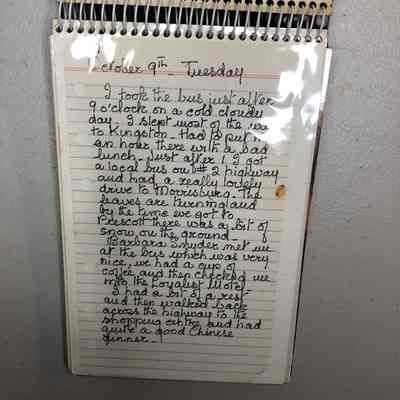 October 9th - Tuesday
I took the bus just after
9 o'clock on a cold cloudy
day. I slept most of the way
to Kingston. Had to put in
an hour there with a bad
lunch. Just after 1 I got
a local bus out #2 highway
and had a really lovely
drive to Morrisburg. The
leaves are turning and
by the time we got to
Prescott there was a bit of
snow on the ground.
Barbara Snyder met me
at the bus which was very
nice, we had a cup of
coffee and then checked me
into the Loyalist Motel.
I had a bit of a rest
and then walked back
across the highway to the
shopping centre and had
quite a good Chinese
dinner.